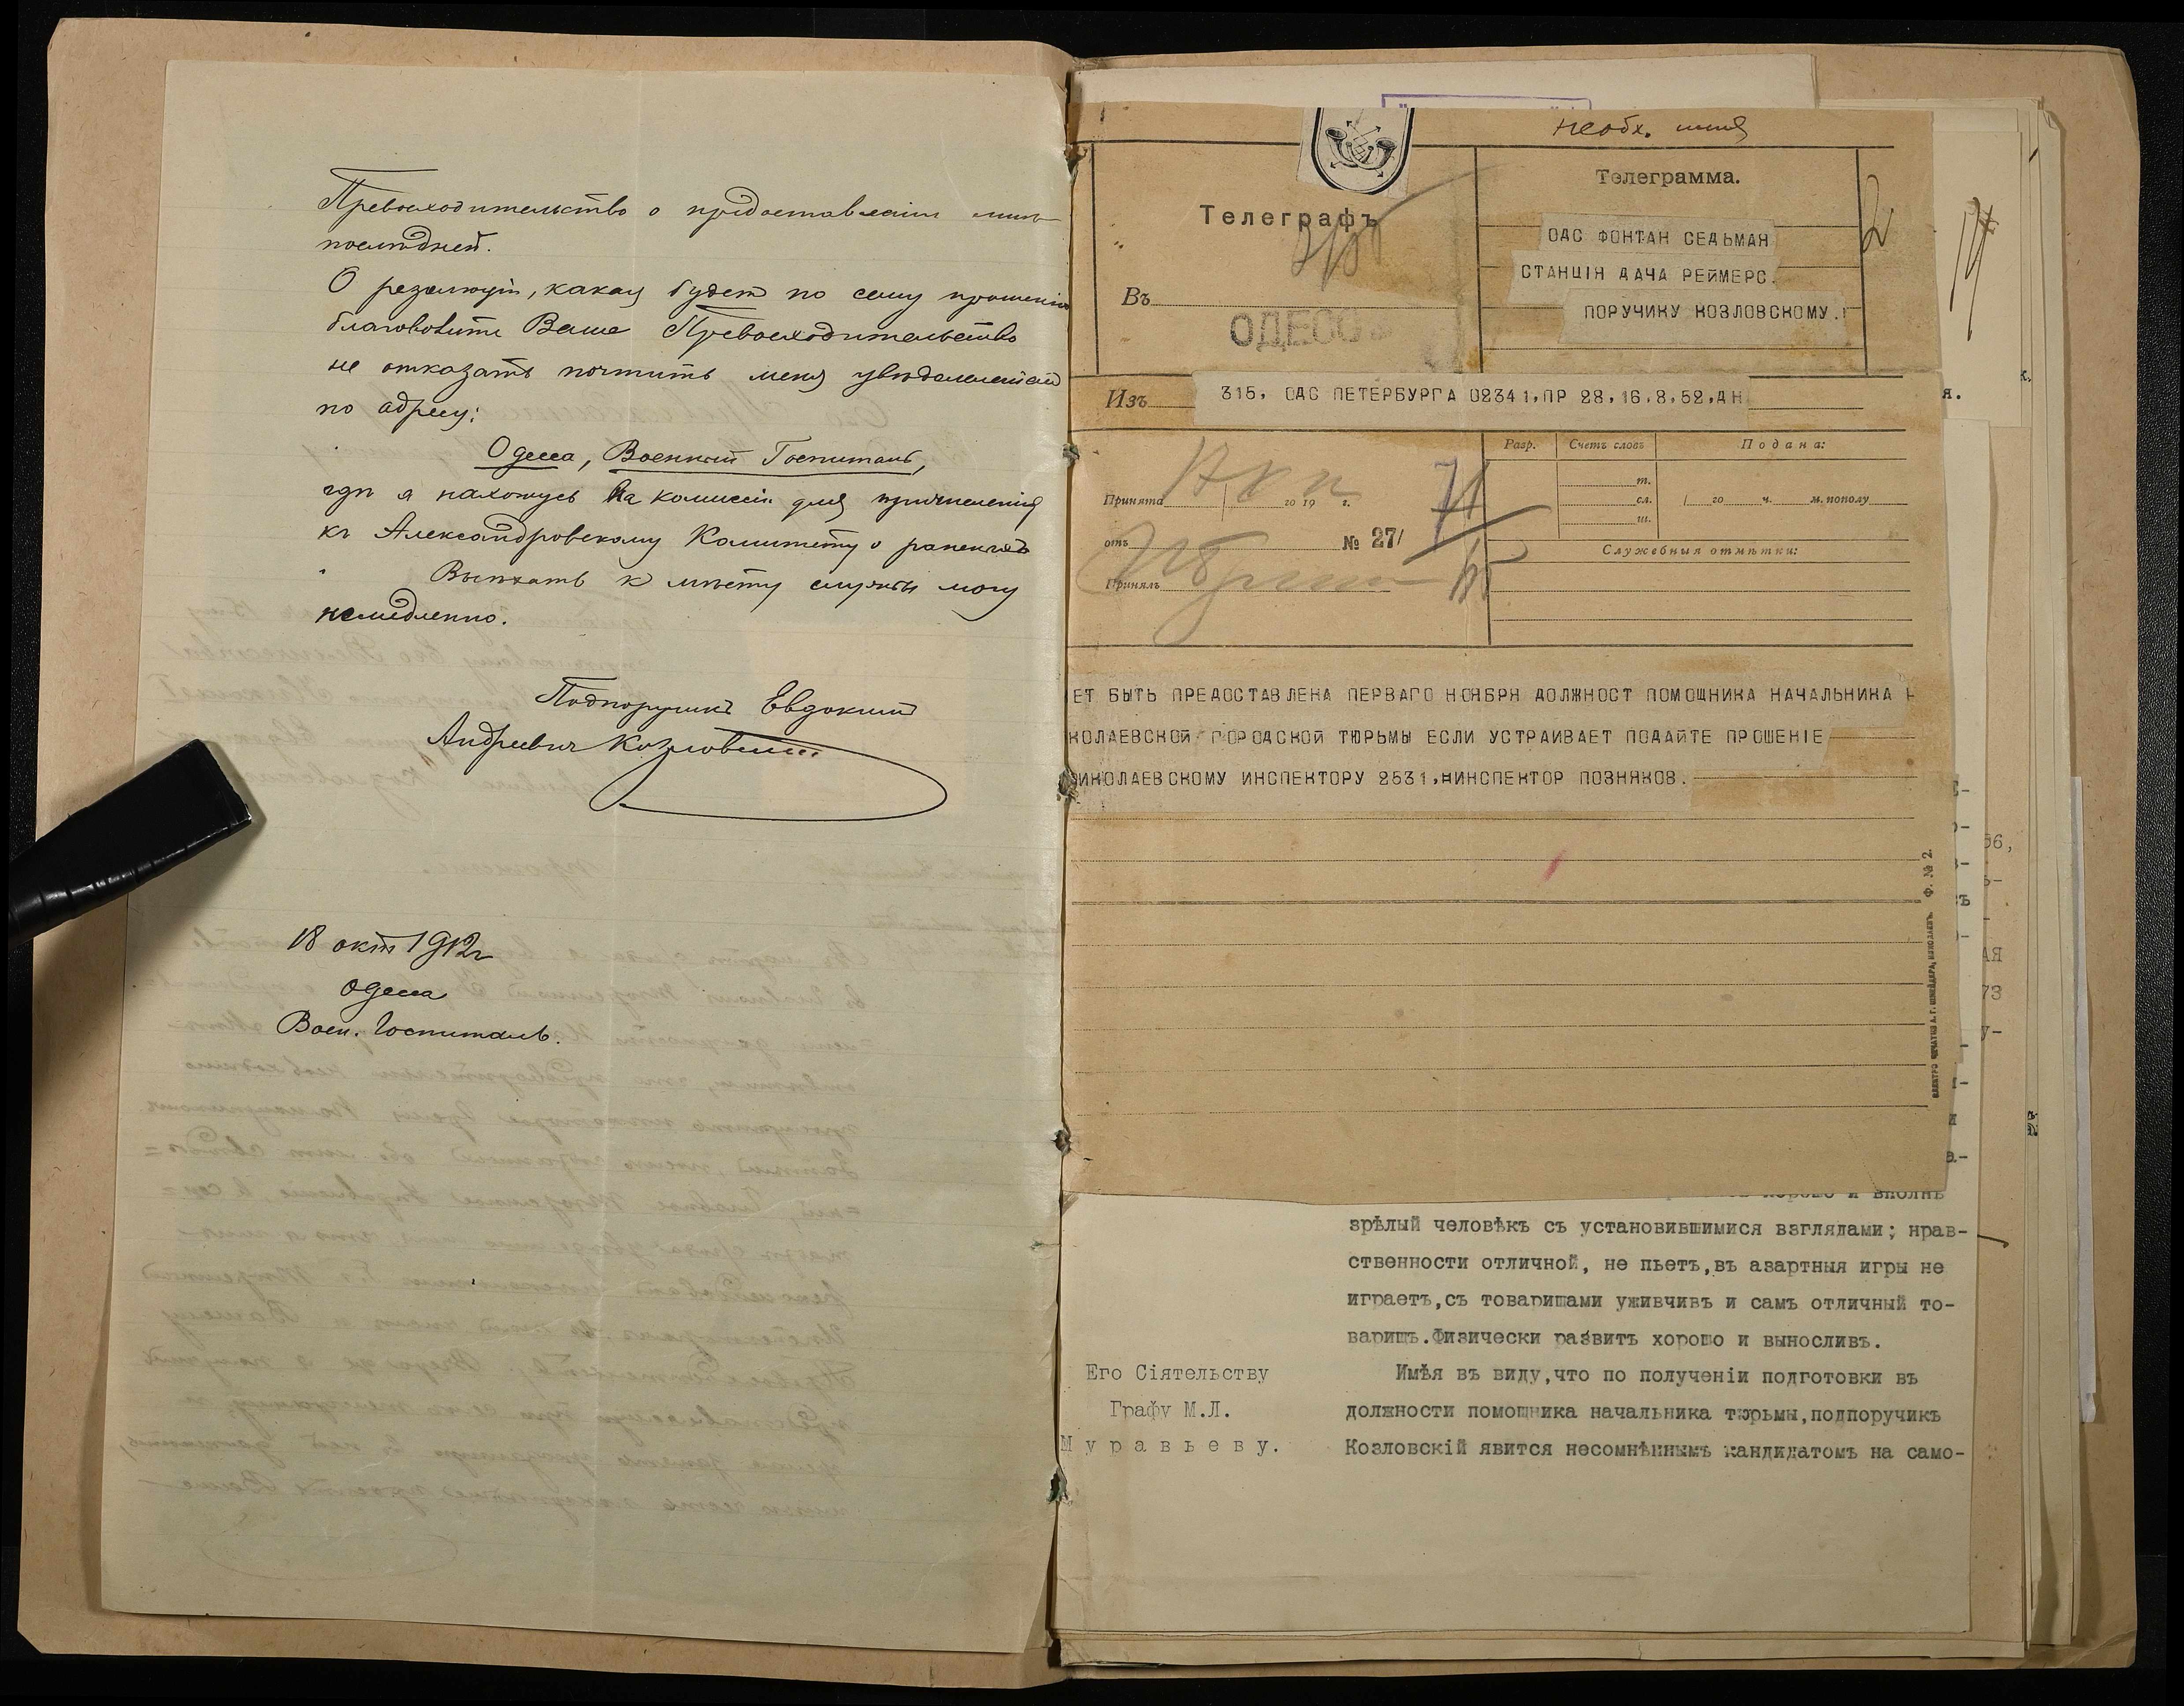 Превосходительство о предоставленіи мнѣ
послѣдней.
О резолюціи, какая будет по сему прошенію
благоволите Ваше Превосходительство
не отказать почтить меня увѣдомленіем
по адресу:
Одесса, Военный Госпиталь,
гдѣ я нахожусь на комиссіи для причисленія
къ Александровскому Комитету о раненыхъ
Выѣхать к мѣсту службы могу
немедленно.
Подпоручикъ Евдоким
Андреевич Козловский
18 окт 1912 г
Одесса
Воен. Госпиталь.
необх.
Телеграфъ
Въ
ОДЕССА
Телеграмма.
ОДС ФОНТАН СЕДЬМАЯ
СТАНЦІЯ ДАЧА РЕЙМЕРС.
ПОРУЧИКУ КОЗЛОВСКОМУ.
2
Изъ
315, ОДС ПЕТЕРБУРГА 02341,ПР 28,16.8,52,ДН
Принята го 19 г.
отъ № 27/
Принялъ
71
Разр. Счетъ словъ Подана:
т.
сл. го ч. м. пополу
ш.
Служебныя отмѣтки:
ЕТ БЫТЬ ПРЕДОСТАВЛЕНА ПЕРВАГО НОЯБРЯ ДОЛЖНОСТ ПОМОЩНИКА НАЧАЛЬНИКА Н
КОЛАЕВСКОЙ ГОРОДСКОЙ ТЮРЬМЫ ЕСЛИ УСТРАИВАЕТ ПОДАЙТЕ ПРОШЕНІЕ
ИКОЛАЕВСКОМУ ИНСПЕКТОРУ 2531,=ИНСПЕКТОР ПОЗНЯКОВ.
Ф. № 2.
хорошо и вполнѣ
зрѣлый человѣкъ съ установившимися взглядами; нрав-
ственности отличной, не пьетъ,въ азартныя игры не
играетъ,съ товарищами уживчивъ и самъ отличный то-
варищъ.Физически развитъ хорошо и выносливъ.
Имѣя въ виду,что по полученіи подготовки въ
должности помощника начальника тюрьмы,подпоручикъ
Козловскій явится несомнѣннымъ кандидатомъ на само-
Его Сіятельству
Графу М.Л.
Муравьеву.